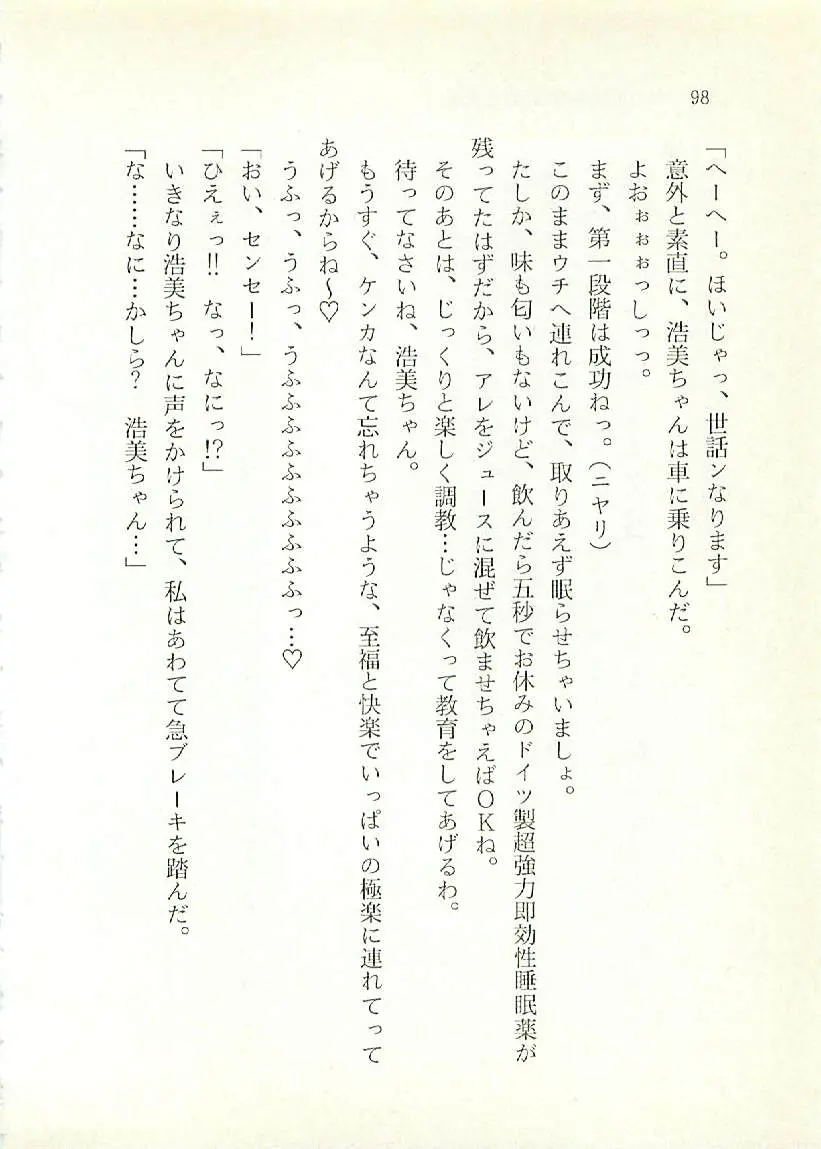 98
「へーへー。ほいじゃっ、世話ンなります」
意外と素直に、浩美ちゃんは車に乗りこんだ。
よおぉぉぉっしっっ。
まず、第一段階は成功ねっ。（ニヤリ）
このままウチへ連れこんで、取りあえず眠らせちゃいましょ。
たしか、味も匂いもないけど、飲んだら五秒でお休みのドイツ製超強力即効性睡眠薬が
残ってたはずだから、アレをジュースに混ぜて飲ませちゃえばＯＫね。
そのあとは、じっくりと楽しく調教…じゃなくって教育をしてあげるわ。
待ってなさいね、浩美ちゃん。
もうすぐ、ケンカなんて忘れちゃうような、至福と快楽でいっぱいの極楽に連れてって
あげるからね～♡
うふっ、うふっ、うふふふふふふふふふっ…♡
「おい、センセー！」
「ひえぇっ!!　なっ、なにっ!?」
いきなり浩美ちゃんに声をかけられて、私はあわてて急ブレーキを踏んだ。
「な……なに…かしら？　浩美ちゃん…」